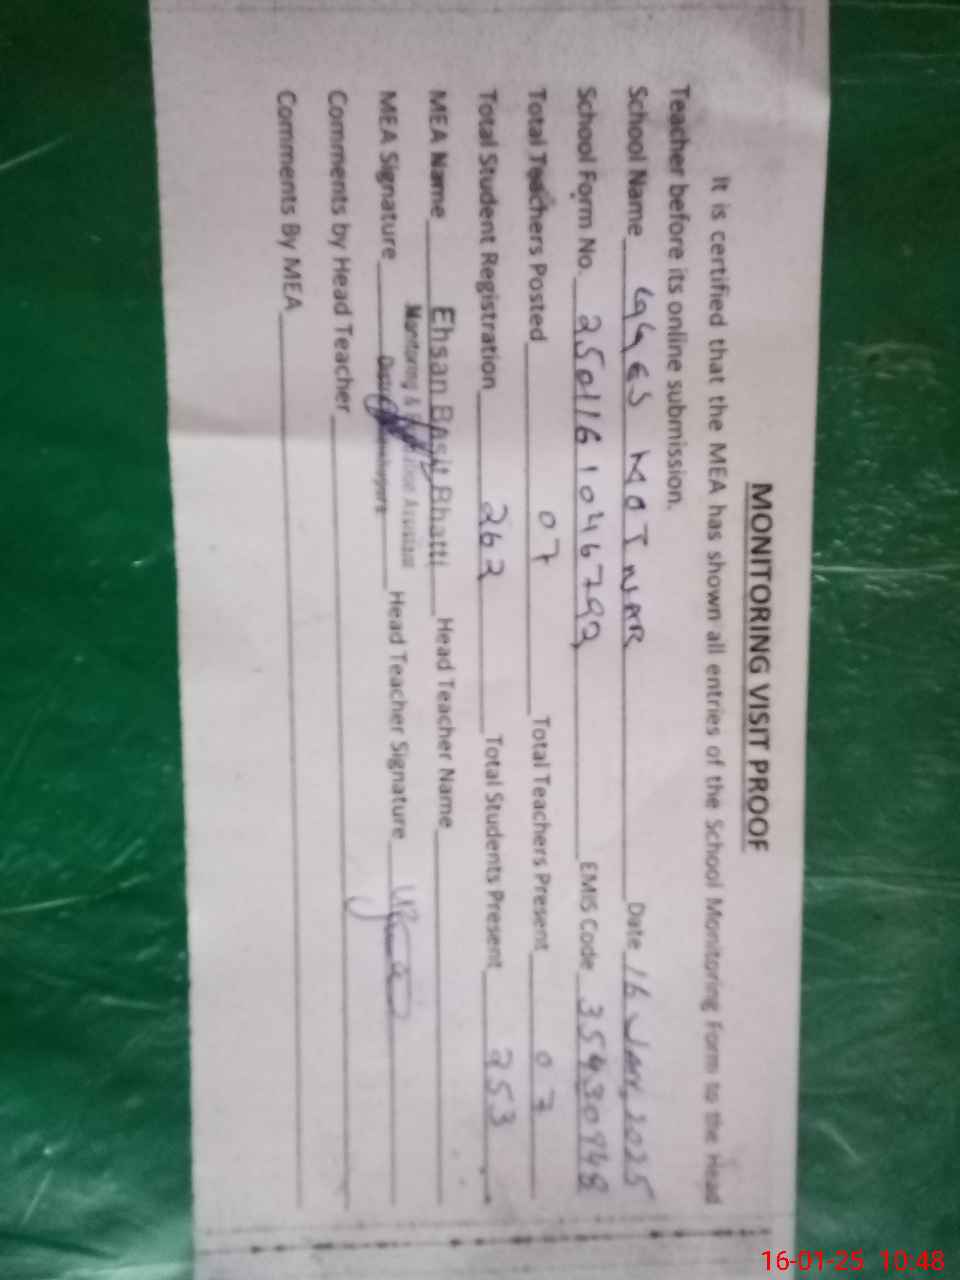 MONITORING VISIT PROOF
It is certified that the MEA has shown all entries of the School Monitoring Form to the Head
Teacher before its online submission.
School Name GGES MOTNAR Date 16 Jan, 2025
School Form No. 250116 1046792 EMIS Code 35430948
Total Teachers Posted 07 Total Teachers Present 07
Total Student Registration 262 Total Students Present 253
MEA Name Ehsan Basit Bhatti Head Teacher Name
Monitoring & Assistant
MEA Signature Head Teacher Signature
Comments by Head Teacher
Comments By MEA
16-01-25 10:48